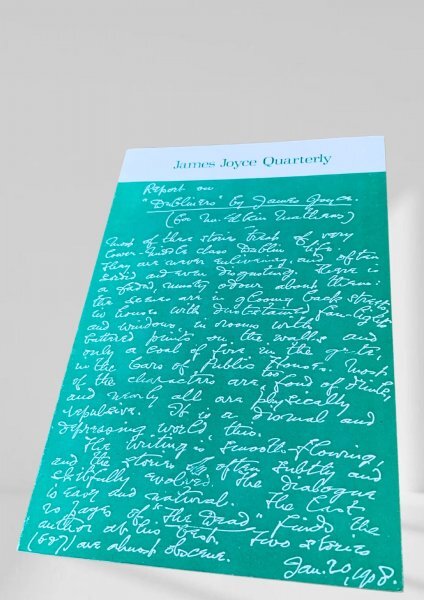 James Joyce Quarterly
Report on
"Dubliners" by James Joyce.
(for Mr. Elkin Mathews)
Most of these stories treat of very
lower-middle class Dublin life.
They are never enlivening, and often
sordid and even disgusting. There is
a faded, musty odour about them:
the scenes are in gloomy back streets,
in houses with dustestained fan-lights
and windows, in rooms with
battered prints on the walls and
only a coal of fire in the grate,
in the bars of Public Houses. Most
of the characters are too fond of drink,
and nearly all are physically
repulsive. It is a dismal and
depressing world, this.
The writing is smooth-flowing,
and the stories often subtly and
skilfully evolved. The dialogue
is easy and natural. The last
20 pages of "The Dead" finds the
author at his best. Two stories
(6 & 7) are almost obscene.
Jan. 20, 1908.